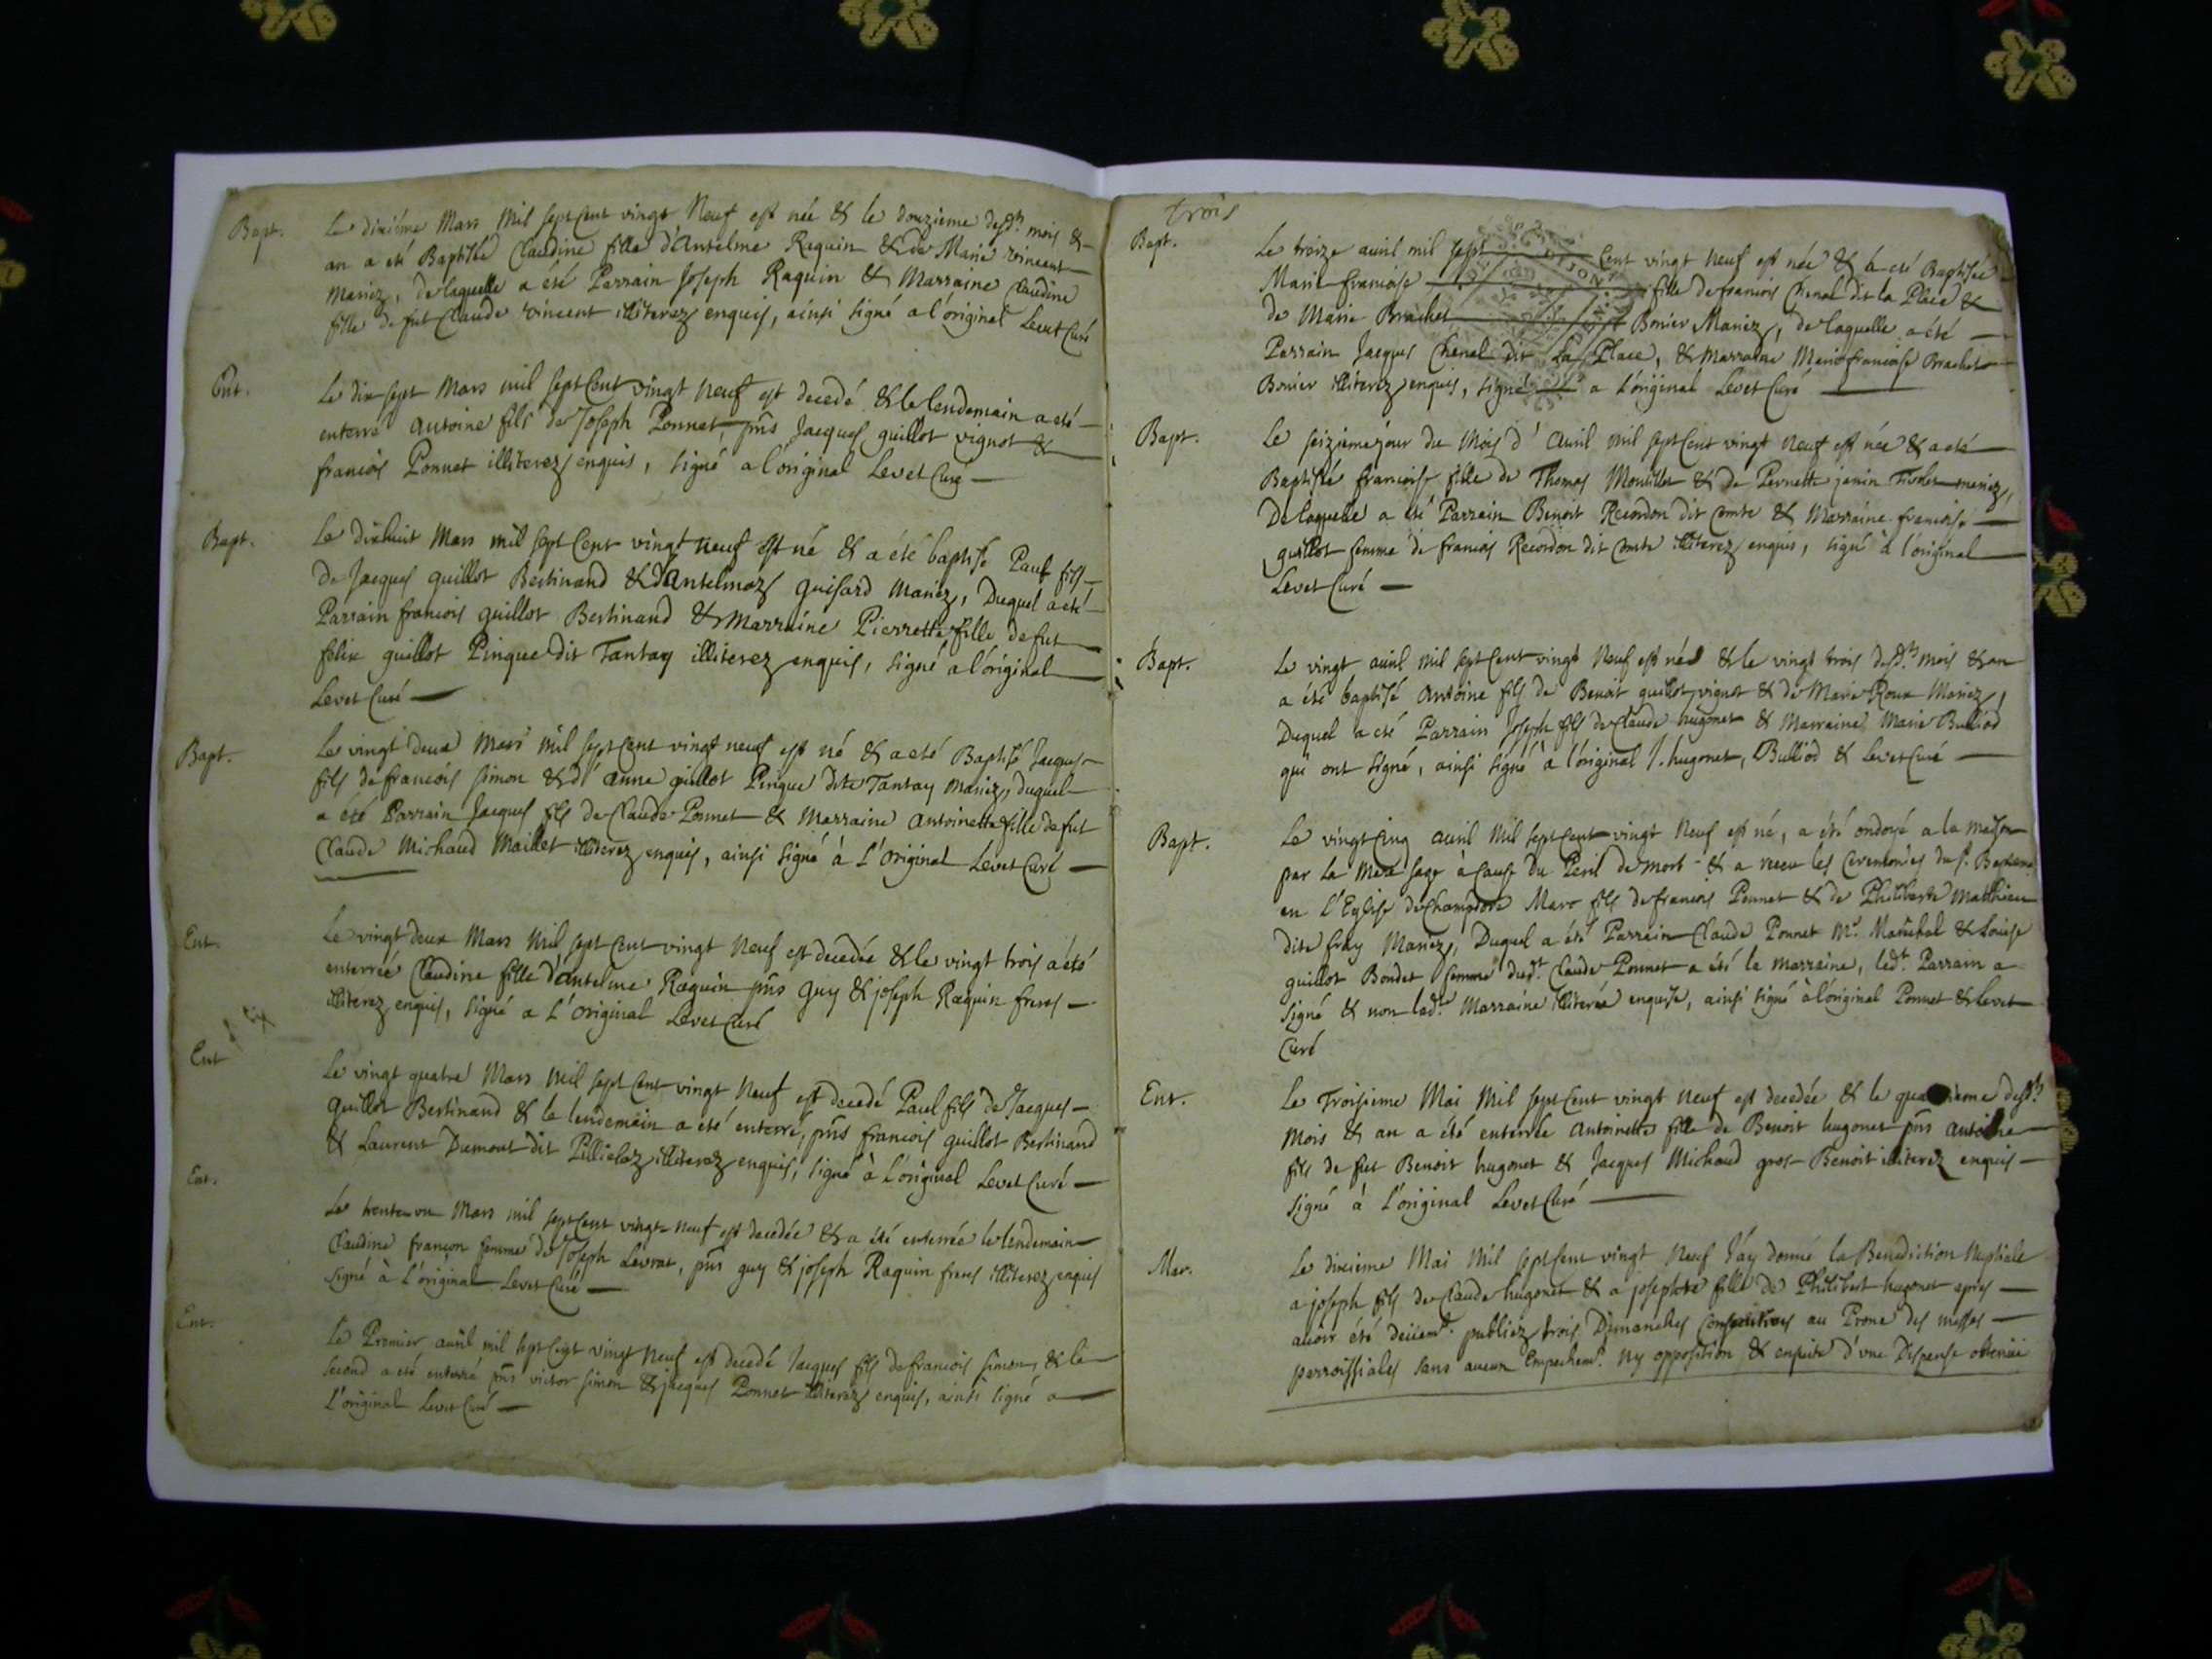 Bapt. Le dixiéme Mars Mil sept Cent vingt Neuf est née & le douzieme desd.ts mois &
an a eté Baptisée Claudine fille d'Antelme Raquin & de Marie vincent
Mariez, de laquelle a été Parrain Joseph Raquin & Marraine Claudine
fille de fut Claude vincent illiterez enquis, ainsi signé a l'original Levet Curé
Ent. Le dix sept Mars mil sept Cent vingt neuf est decedé & le lendemain a eté
enterré Antoine fils de Joseph Ponnet, pñs Jacques guillot vignot &
francois Ponnet illiterez enquis, signé a l'original Levet Curé
Bapt. Le dixhuit Mars mil sept Cent vingt neuf est né & a été baptisé Paul fils
De Jacques guillot Bertinand & d'Antelmaz guisard Mariez, Duquel a eté
Parrain francois guillot Bertinand & Marraine Pierrette fille de fut
felix guillot Pingue dit Tantay illiterez enquis, signé a l'original
Levet Curé
Bapt. Le vingt deux Mars mil sept Cent vingt neuf est né & a eté Baptisé Jacques
fils de francois simon & d'anne guillot Pingue dite Tantay Mariez, duquel
a eté Parrain Jacques fils de Claude Ponnet & Marraine Antoinette fille de fut
Claude Michaud Maillet illiterez enquis, ainsi signé à L'original Levet Curé
Ent. Le vingt deux Mars Mil sept Cent vingt Neuf est decedée & le vingt trois a été
enterrée Claudine fille d'antelme Raquin pñs guy & joseph Raquin freres
illiterez enquis, signé a L'original Levet Curé
Ent Le vingt quatre Mars Mil sept Cent vingt Neuf est decedé Paul fils de Jacques
guillot Bertinand & le lendemain a eté enterré, pñs francois guillot Bertinand
& Laurent Dumont dit illiterez enquis, signé à L'original Levet Curé
Ent. Le trente un Mars mil sept Cent vingt neuf est decedée & a été enterrée le lendemain
Claudine françon femme de Joseph Levrat, pñs guy & joseph Raquin freres illiterez enquis
signé à L'original Levet Curé
Ent. Le Premier avril mil sept Cent vingt Neuf est decedé Jacques fils de francois simon, & le
second a eté enterré pñs victor simon & jacques Ponnet illiterez enquis, ainsi signé a
L'original Levet Curé
trois
Bapt. Le treize avril mil sept Cent vingt neuf est née & a eté Baptisée
Marie francoise fille de francois Chenal dit la Place &
de Marie Brachet Bonier Mariez, de laquelle a été
Parrain Jacques Chenal dit La Place, & Marraine Marie francoise Brachet
Bonier illiterez enquis, signé a L'original Levet Curé
Bapt. Le seizieme jour du Mois d'avril mil sept Cent vingt neuf est née & a eté
Baptisée francoise fille de Thomas Moutillet & de Pernette janin mariez,
De laquelle a eté Parrain Benoit Recordon dit Comte & Marraine francoise
guillot femme de francois Recordon dit Comte illiterez enquis, signé à l'original
Levet Curé
Bapt. Le vingt avril mil sept Cent vingt Neuf est né & le vingt trois desd.ts mois & an
a été baptisé Antoine fils de Benoit guillot vignot & de Marie Roux Mariez,
Duquel a eté Parrain Joseph fils de Claude hugonet & Marraine Marie Bulliod
qui ont signé, ainsi signé à l'original J. hugonet, Bulliod & Levet Curé
Bapt. Le vingt Cinq avril Mil sept Cent vingt Neuf est né, a été ondoyé a la maison
par la Mere sage à Cause Du Peril de mort & a receu les Ceremonies du s.t Bapteme
en L'Eglise de Champdore Marc fils de francois Ponnet & de Philiberte Matthieu
dite fray Mariez, Duquel a été Parrain Claude Ponnet M.e Maréchal & Louise
guillot Bondet femme dud.t Claude Ponnet a été la marraine, led.t Parrain a
signé & non lad.te Marraine illiterée enquise, ainsi signé à l'original Ponnet & Levet
Curé
Ent. Le Troisieme Mai Mil sept Cent vingt neuf est decedée & le quatrieme desd.ts
Mois & an a été enterrée Antoinette fille de Benoit hugonet pñs antoine
fils de fut Benoit hugonet & Jacques Michaud gros Benoit illiterez enquis
signé à L'original Levet Curé
Mar. Le dixieme Mai Mil sept Cent vingt Neuf J'ay donné la Benediction Nuptiale
a joseph fils de Claude hugonet & a josephte fille de Philibert hugonet après
avoir été deüem.t publiez trois Dimanches Consecutives au Prone des messes
parroissiales sans aucun Empechem.t ny opposition & ensuite d'une Dispense obtenüe